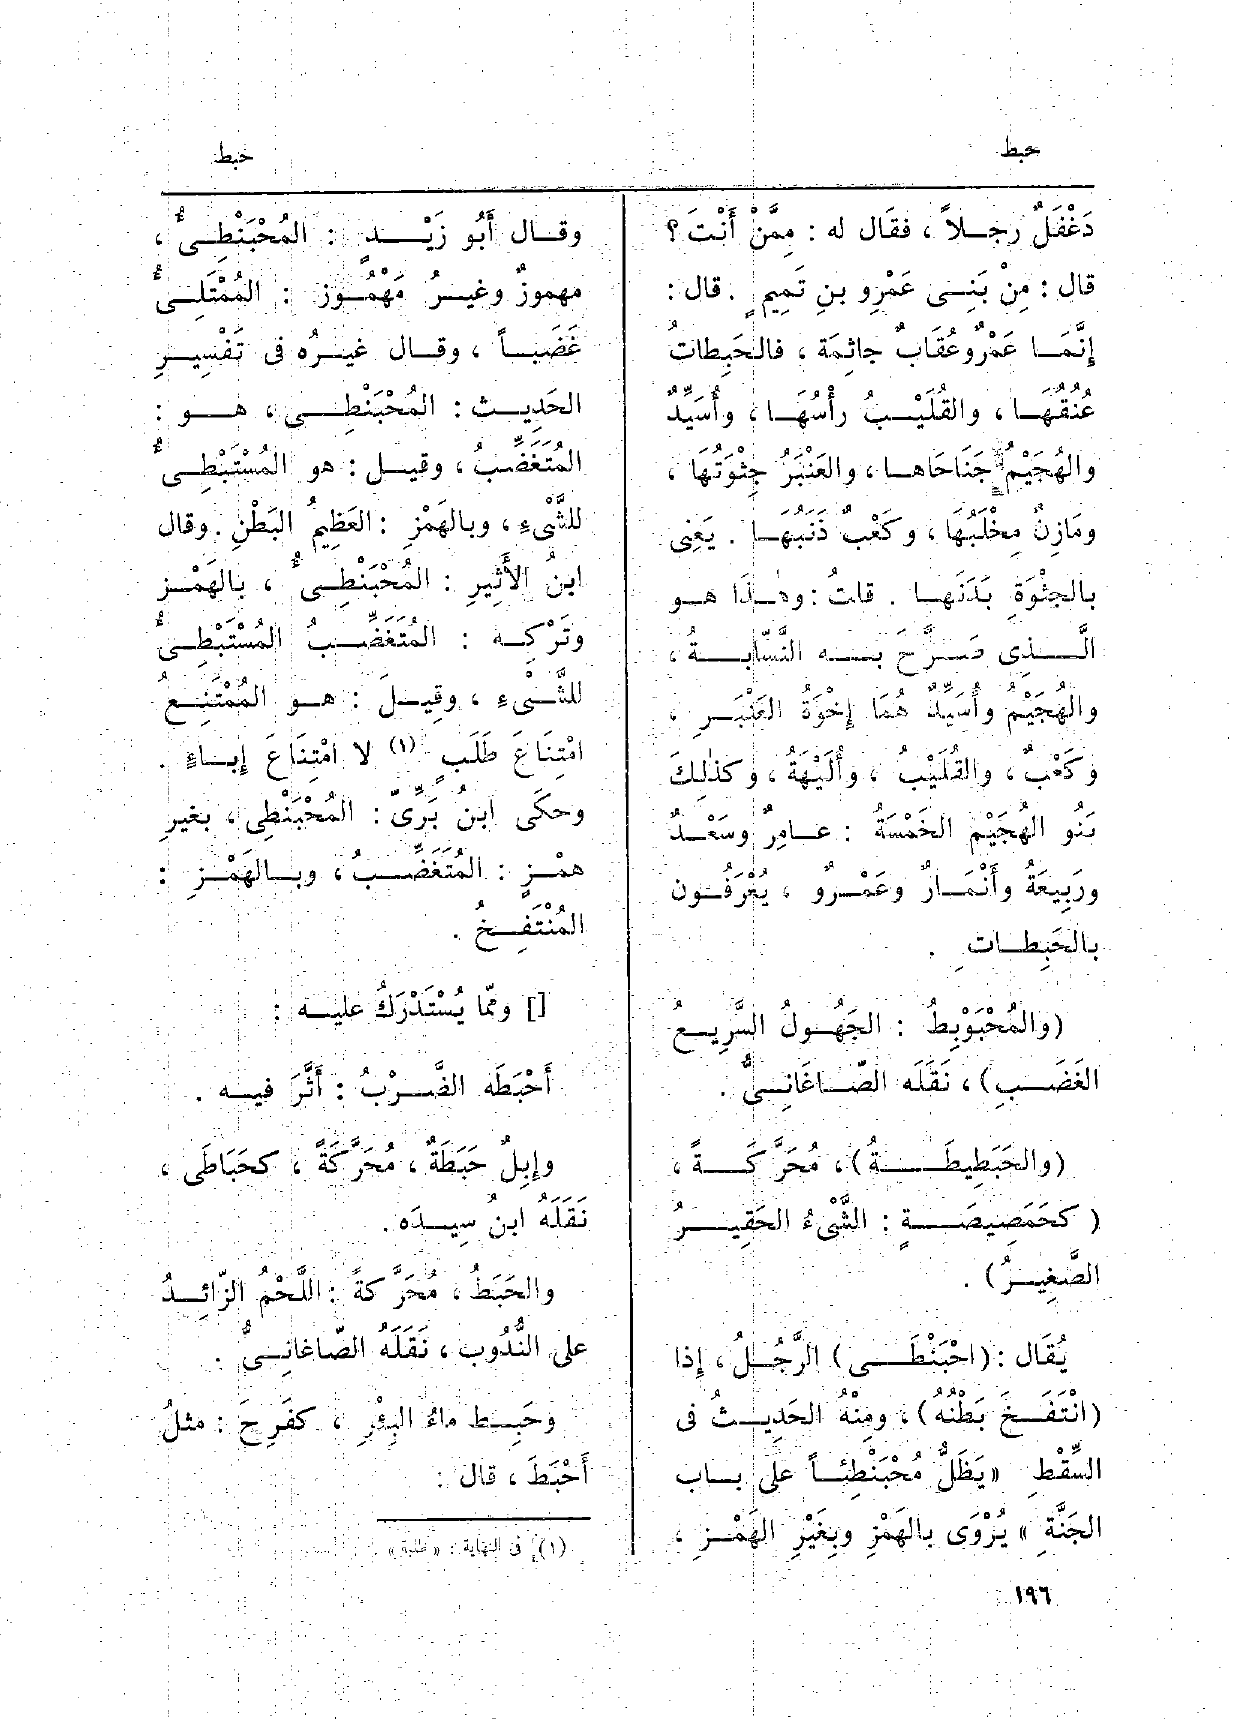 حبط
حبط
دَغْفَلٌ رجلاً ، فقَال له : مِمَّنْ أَنْتَ ؟
قال : مِنْ بَنِى عَمْرِو بنِ تَمِيمٍ . قال :
إِنَّمَا عَمْرٌو عُقَابٌ جاثِمَة ، فالحَبِطاتُ
عُنُقُهَا ، والقُلَيْبُ رأْسُهَا ، وأُسَيِّدٌ
والهُجَيْمُ جَنَاحَاها ، والعَنْبَرُ جِثْوَتُهَا ،
ومَازِنٌ مِخْلَبُهَا ، وكَعْبٌ ذَنَبُهَا . يَعْنِى
بالجِثْوَةِ بَدَنَهَا . قلتُ : وهٰذا هو
الَّذِى صَرَّحَ بِه النَّسّابَةُ ،
والهُجَيْمُ وأُسَيِّدٌ هُمَا إِخْوَةُ العَنْبَرِ ،
وكَعْبٌ ، والقُلَيْبُ ، وأُلَيْهَةُ ، وكذٰلِكَ
بَنُو الهُجَيْمِ الخَمْسَةُ : عامِرٌ وسَعْدٌ
ورَبِيعَةُ وأَنْمَارٌ وعَمْرٌو ، يُعْرَفُون
بالحَبِطاتِ .
(والمُحْبَوْبِطُ : الجَهُولُ السَّرِيعُ
الغَضَبِ) ، نَقَلَه الصّاغَانِىُّ .
(والحَبَطِيطَةُ) ، مُحَرَّكَةً ،
( كحَمَصِيصَةٍ : الشَّىْءُ الحَقِيرُ
الصَّغِيرُ) .
يُقَال : (احْبَنْطَى) الرَّجُلُ ، إِذا
(انْتَفَخَ بَطْنُهُ) ، ومِنْهُ الحَدِيثُ فى
السِّقْطِ «يَظَلُّ مُحْبَنْطِئاً على باب
الجَنَّةِ » يُرْوَى بالهَمْزِ وبِغَيْرِ الهَمْزِ ،
وقال أَبُو زَيْدٍ : المُحْبَنْطِىءُ ،
مهموزٌ وغيرُ مَهْمُوز : المُمْتَلِىءُ
غَضَباً ، وقال غيرُه فى تَفْسِيرِ
الحَدِيث : المُحْبَنْطِى ، هو :
المُتَغَضِّبُ ، وقيل : هو المُسْتَبْطِىءُ
للشَّىْءِ ، وبالهَمْزِ : العَظِيمُ البَطْنِ . وقال
ابنُ الأَثِيرِ : المُحْبَنْطِىءُ ، بالهَمْز
وتَرْكِه : المُتَغَضِّبُ المُسْتَبْطِىءُ
للشَّىْءِ ، وقِيلَ : هو المُمْتَنِعُ
امْتِنَاعَ طَلَبٍ (١) لا امْتِنَاعَ إِباءٍ .
وحكَى ابنُ بَرِّىّ : المُحْبَنْطِى ، بغيرِ
همْزٍ : المُتَغَضِّبُ ، وبالهَمْزِ :
المُنْتَفِخُ .
[] وممّا يُسْتَدْرَكُ عليه :
أَحْبَطَه الضَّرْبُ : أَثَّرَ فيه .
وإِبِلٌ حَبَطَةٌ ، مُحَرَّكَةً ، كحَبَاطَى ،
نَقَلَهُ ابنُ سِيدَه .
والحَبَطُ ، مُحَرَّكةً : اللَّحْمُ الزّائِدُ
على النُّدُوب ، نَقَلَهُ الصّاغانِىُّ .
وحَبِط ماءُ البِئْرِ ، كفَرِحَ : مثلُ
أَحْبَطَ ، قال :
(١) فى النهاية : «طلبة» .
١٩٦